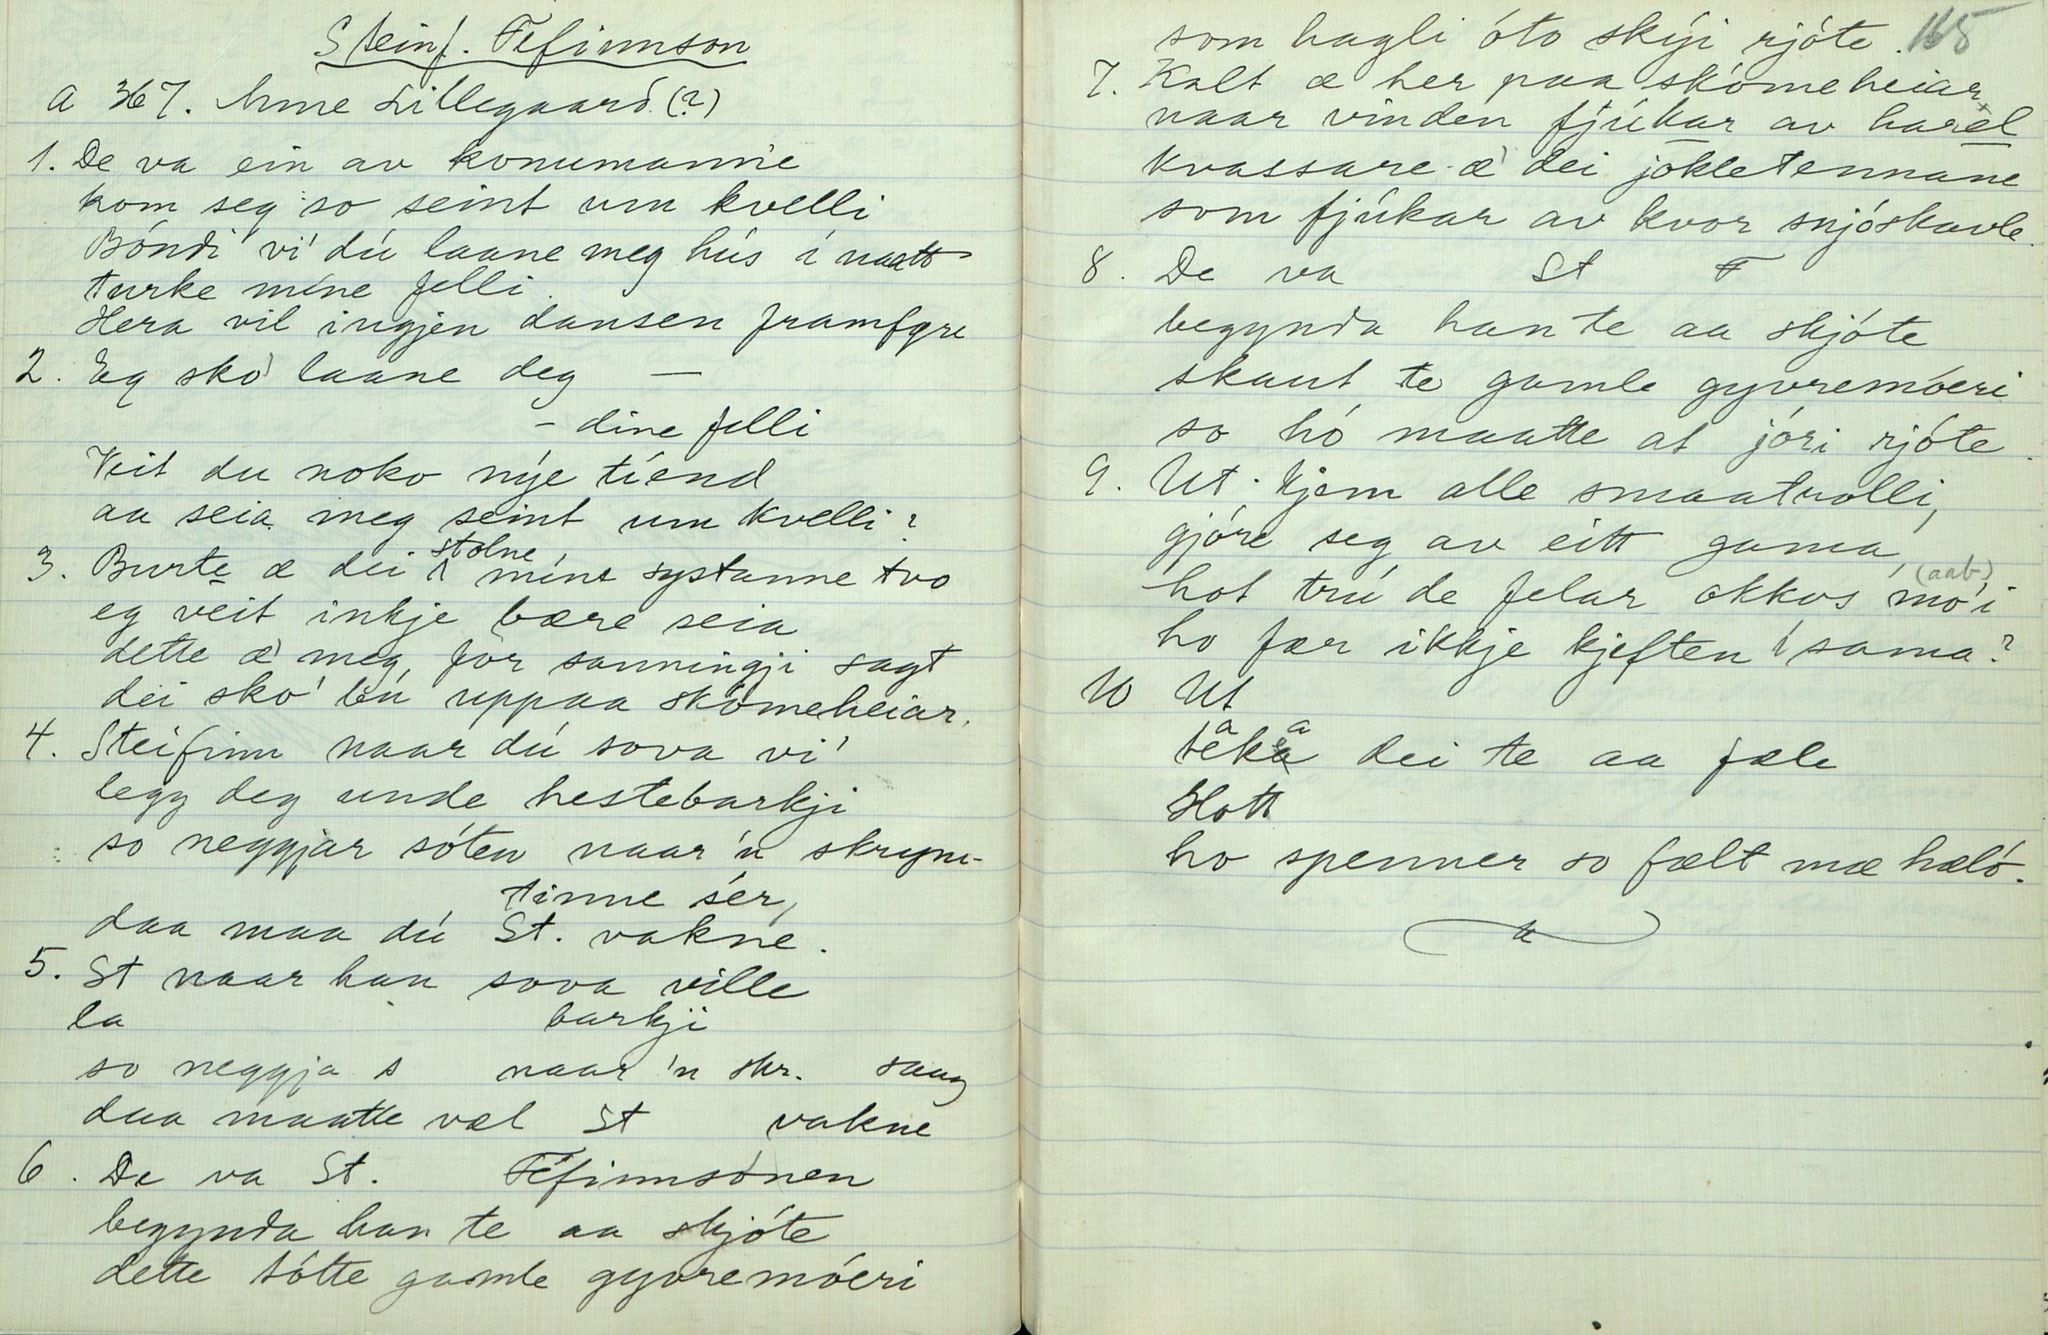 Steinf. Fefinnson
a 367. Anne Lillegaard (?)
1. De va ein av konumann'e
kom seg so seint um kvelli
Bóndi vi' dú laane meg hús i naatt
turke mine felli.
Hera vil ingjen dansen framfyre
2. Eg sko' laane deg —
– dine felli
Veit du noko nýe tíend
aa seia meg seint um kvelli?
3. Burte æ dei stolne mine systanne tvo
eg veit inkje bære seia
dette æ' meg for sanningji sagt
dei sko' bú uppaa skómeheiar.
4. Steifinn naar dú sova vi'
legg deg unde hestebarkji
so neggjar sóten naar 'n skrym-
tinne sér,
daa maa dú St. vakne.
5. St naar han sova ville
la barkji
so neggja s naar 'n skr. saag
daa maatte væl St vakne
6. De va St. Féfinnsónen
begynda han te aa skjóte
dette tótte gamle gyvremóeri
som hagli óto skýi rjóte. 165
7. Kalt æ her paa skómeheiar
naar vinden fjúkar av harel
kvassare æ' dei jokletennane
som fjúkar av kvor snjóskavle.
8. De va St F
begynda han te aa skjóte
skaut te gamle gyvremóeri
so hó maatte at jóri rjóte.
9. Ut kjem alle smaatrolli,
gjóre seg av eitt gama
hot trú de felar okkos mó'i (aab)
ho fær ikkje kjeften i sama?
10 Ut
a a
teka dei te aa fæle
Hott
ho spenner so fælt mæ hæló.